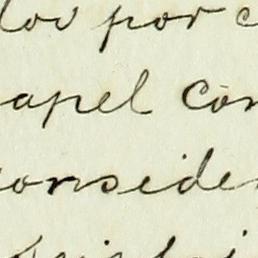 dov por c
apel con
conside